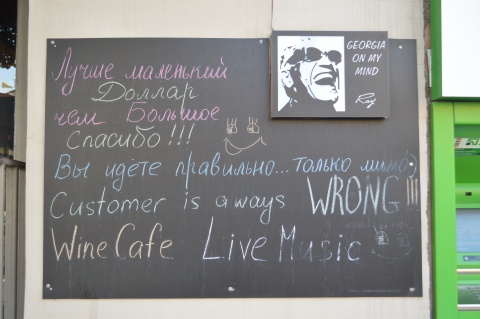 Лучше маленький
Доллар
чем Большое
спасибо!!!
Вы идёте правильно... только мимо
Customer is aways WRONG!!!
Wine Cafe Live Music
GEORGIA
ON MY
MIND
Ray